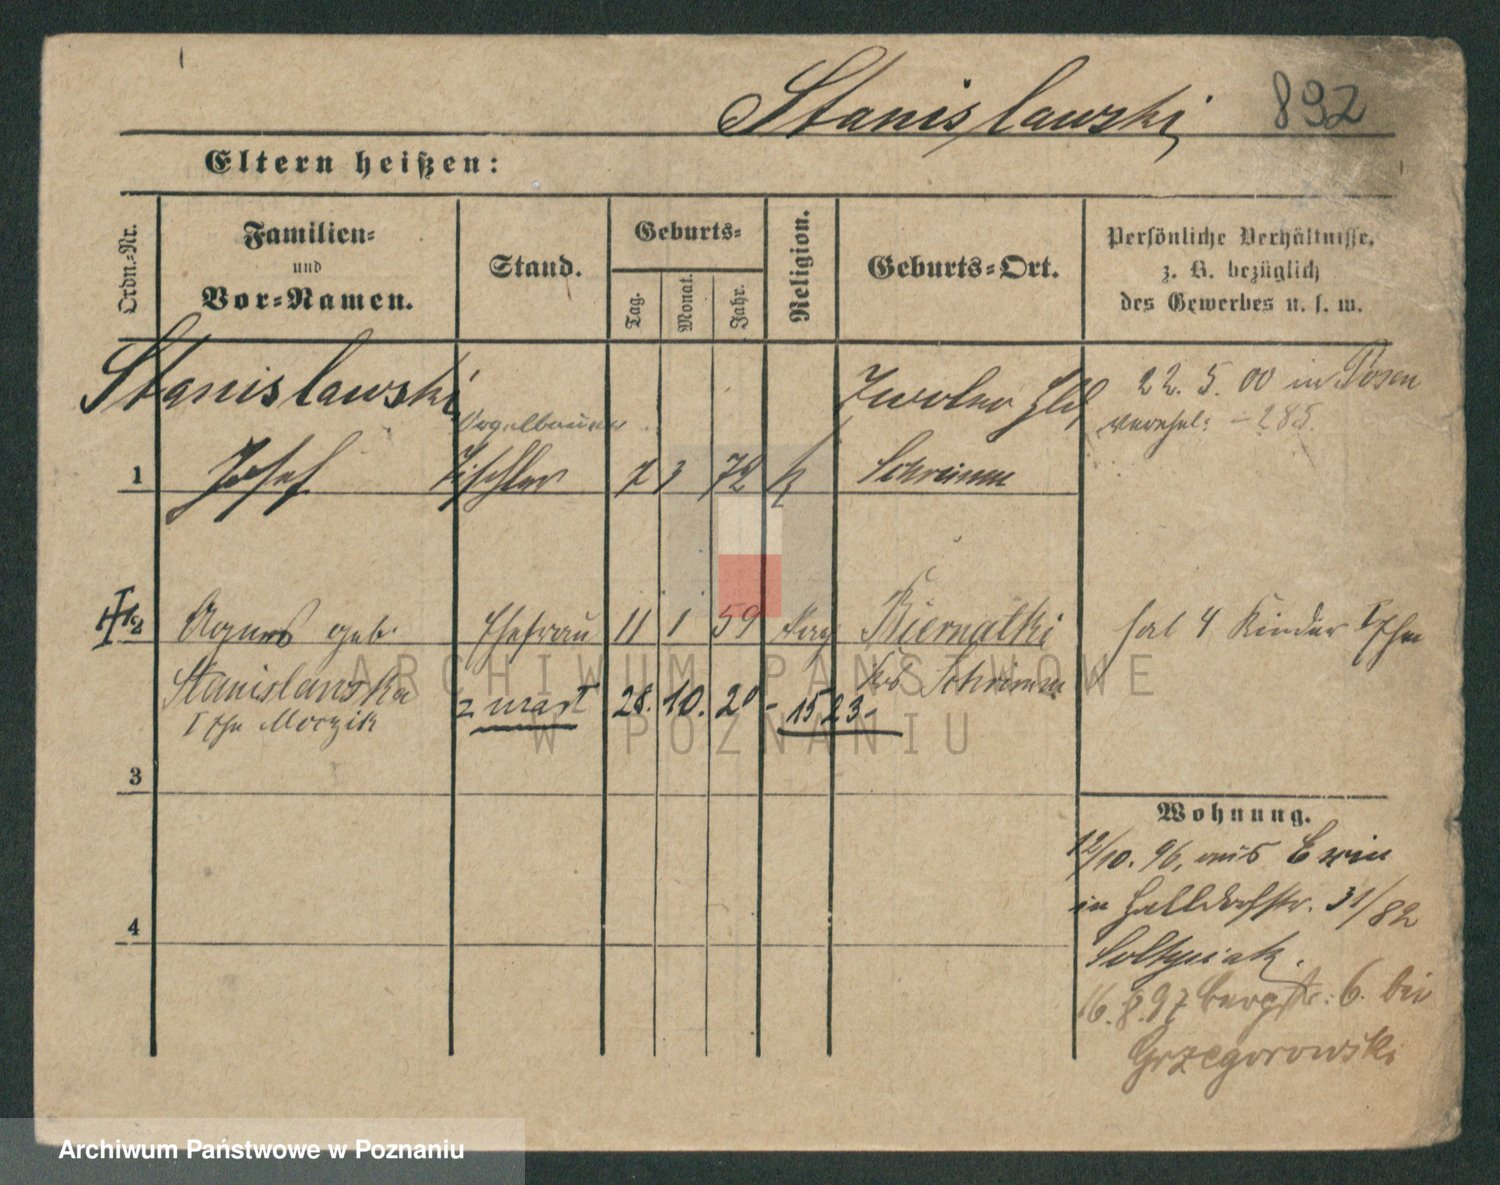 Stanisławski 892
Eltern heißen:
Ordn.-Nr.
Familien-
und
Vor-Namen.
Stand.
Geburts-
Tag.
Monat.
Jahr.
Religion.
Geburts-Ort.
Persönliche Verhältnisse,
z. B. bezüglich
des Gewerbes u. s. w.
Stanisławski
Orgelbauer
22. 5. 00 in Posen
verehel: - 285.
1 Josef Tischler 7 3 72 k Schrimm
2 Agnes geb. Ehefrau 11 1 59 Biernatki
hat 4 Kinder I Ehe
Stanislawska Krs Schrimm
I Ehe
zmarł 28. 10. 20 - 1523-
3
Wohnung.
12/10. 96, aus
in Halldorfstr. 31/82
Soltysiak.
4
16. 8. 97 Bergstr: 6. bei
Grzegorowski
ARCHIWUM PAŃSTWOWE
W POZNANIU
Archiwum Państwowe w Poznaniu